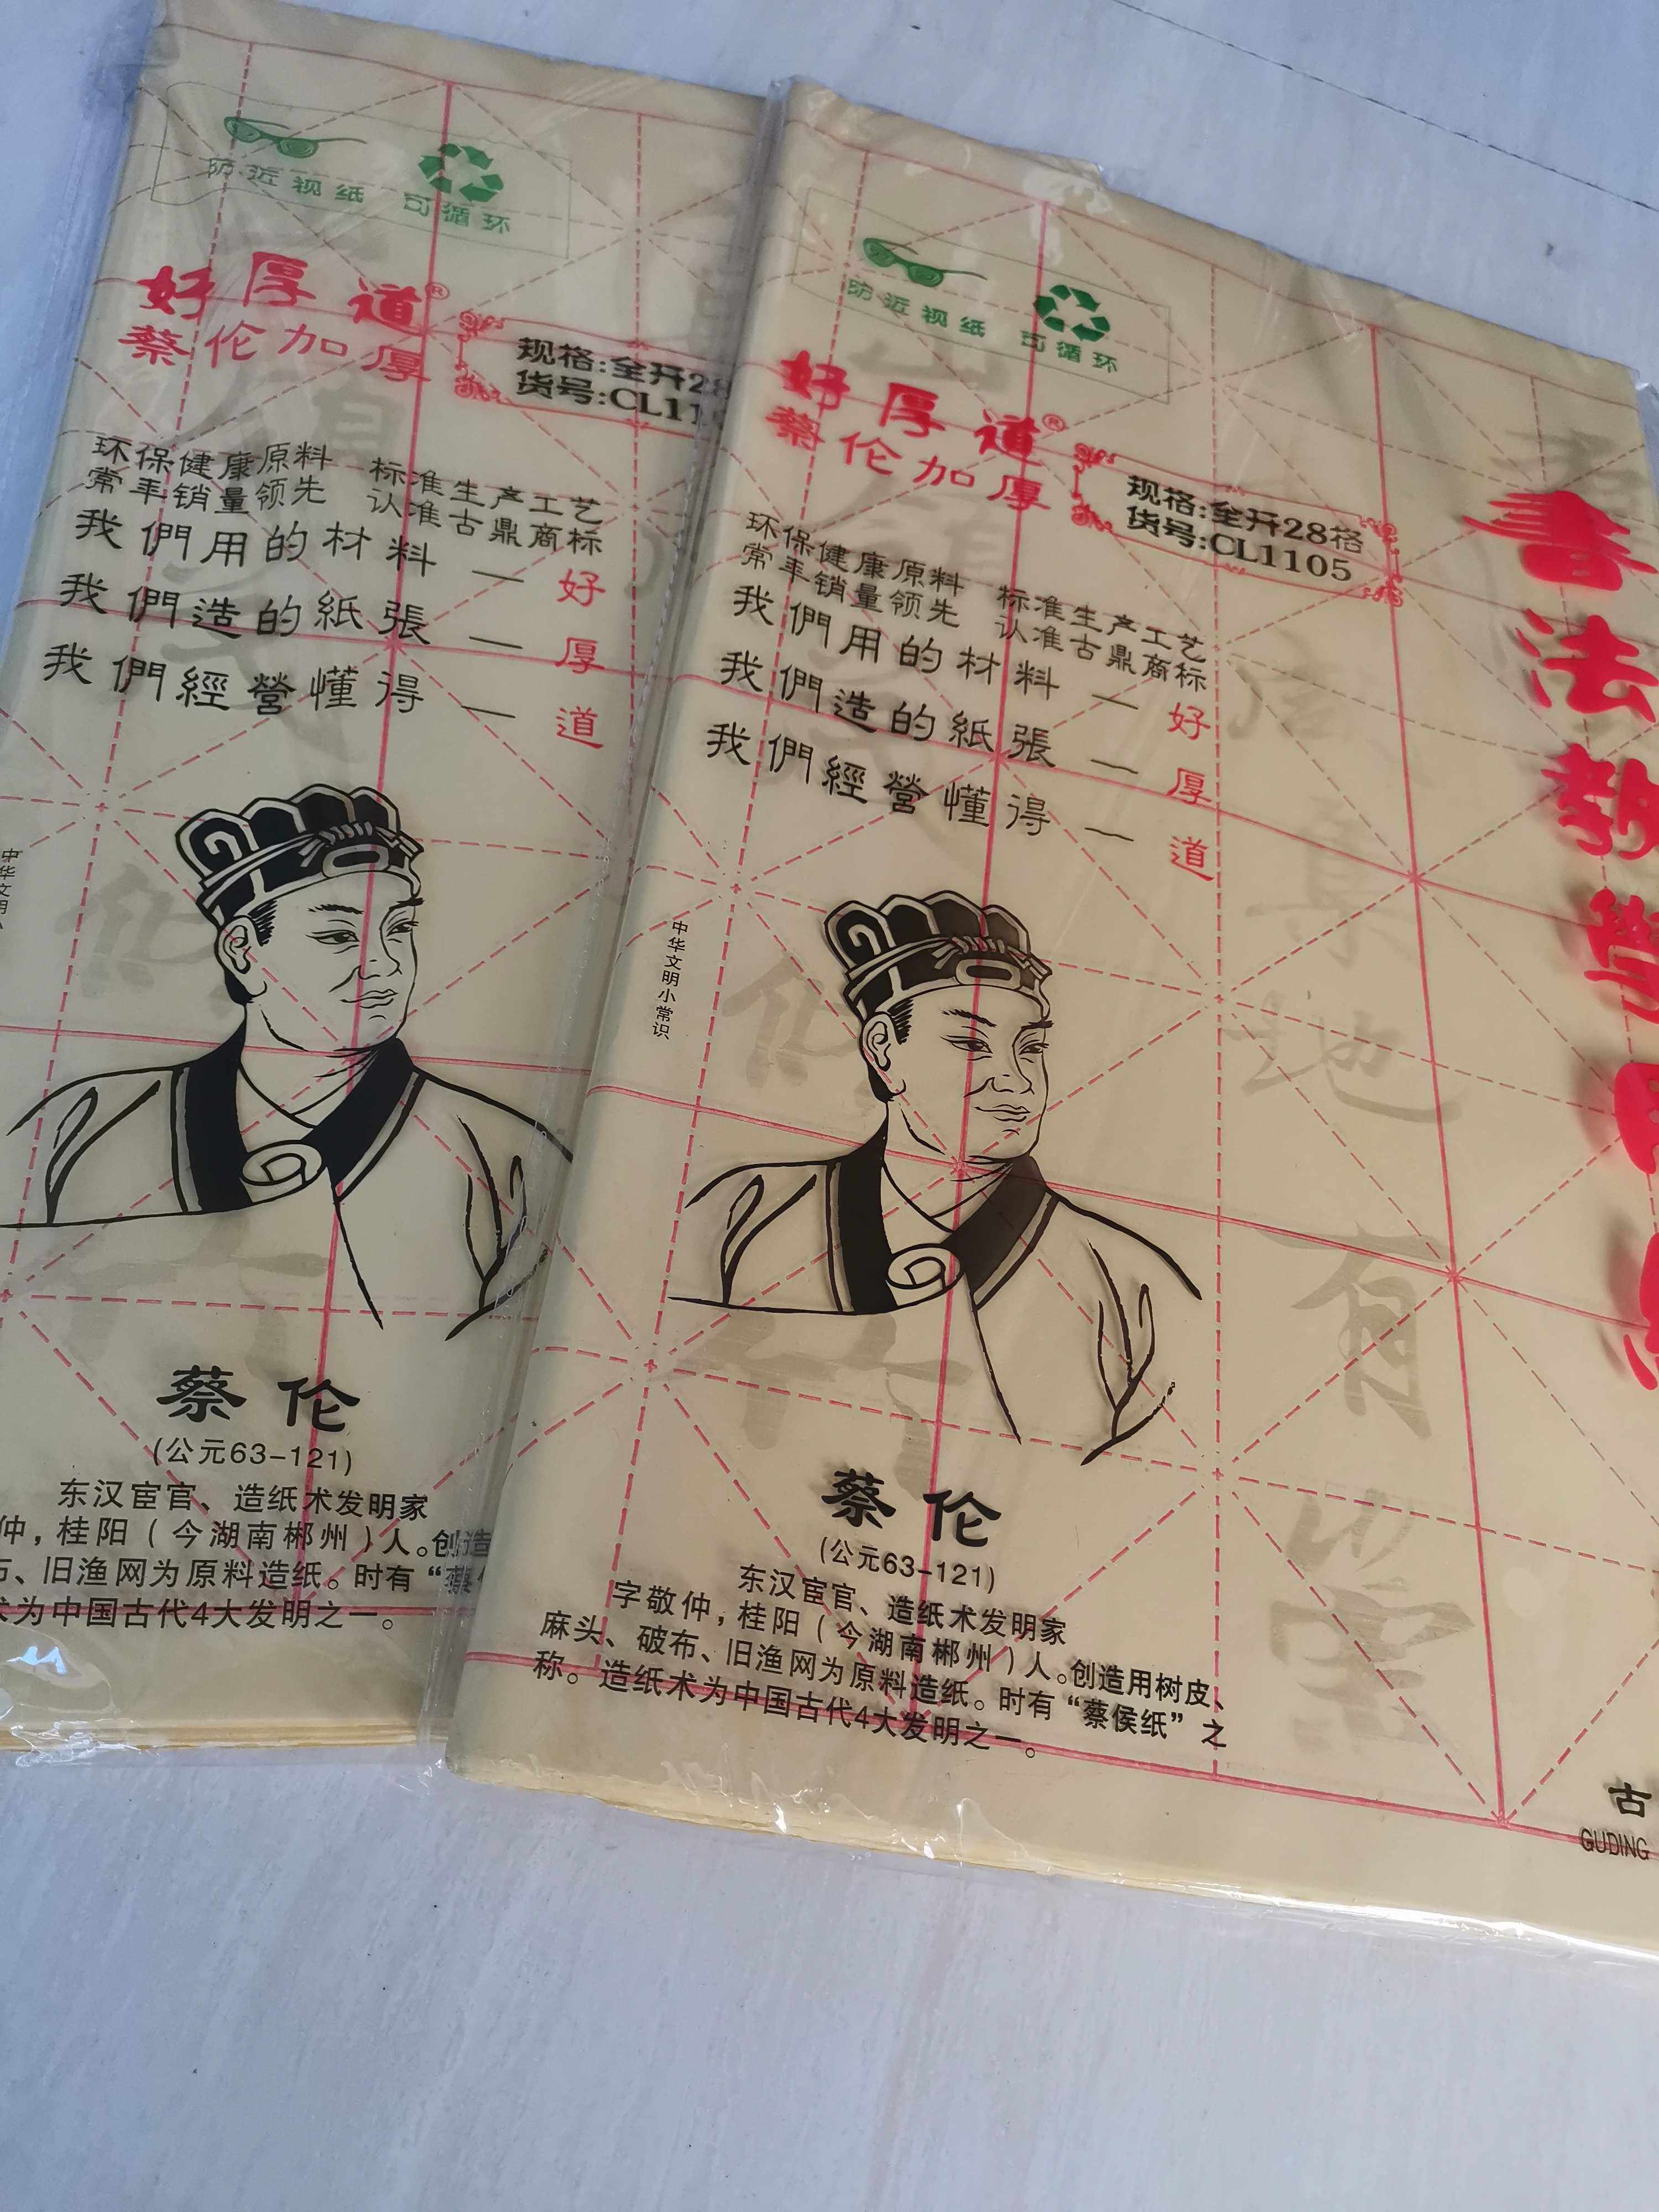 防近视纸 可循环
好厚道®
蔡伦加厚
规格:全开28
货号:CL11
环保健康原料 标准生产工艺
常年销量领先 认准古鼎商标
我們用的材料—好
我們造的紙張—厚
我們經營懂得—道
中华文明
蔡伦
(公元63-121)
东汉宦官、造纸术发明家
仲,桂阳(今湖南郴州)人。创造
布、旧渔网为原料造纸。时有“蔡
术为中国古代4大发明之一。
防近视纸 可循环
好厚道®
蔡伦加厚
规格:全开28格
货号:CL1105
环保健康原料 标准生产工艺
常年销量领先 认准古鼎商标
我們用的材料—好
我們造的紙張—厚
我們經營懂得—道
中华文明小常识
蔡伦
(公元63-121)
东汉宦官、造纸术发明家
字敬仲,桂阳(今湖南郴州)人。创造用树皮、
麻头、破布、旧渔网为原料造纸。时有“蔡侯纸”之
称。造纸术为中国古代4大发明之一。
書法教學用
古
GUDING
有雲